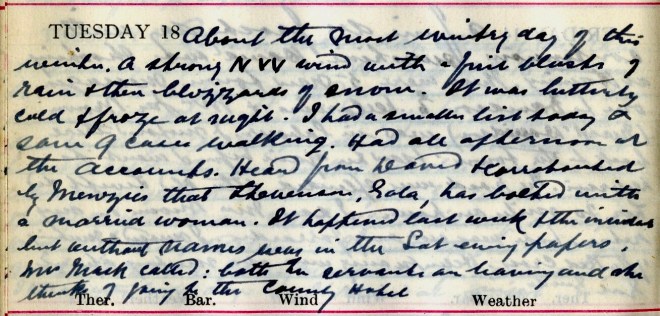 TUESDAY 18 About the most wintry day of this
winter. A strong NW wind with a first blasts of
rain & then blizzards of snow. It was bitterly
cold & froze at night. I had a smaller list today &
some 9 cases walking. Had all afternoon at
the accounts. Heard from David & corroborated
by Menzies that Stevenson, Sola, has bolted with
a married woman. It happened last week & the incident
but without names was in the Sat eving papers.
Mrs Mack called: both her servants are leaving and she
thinks of going to the County Hotel
Ther. Bar. Wind Weather